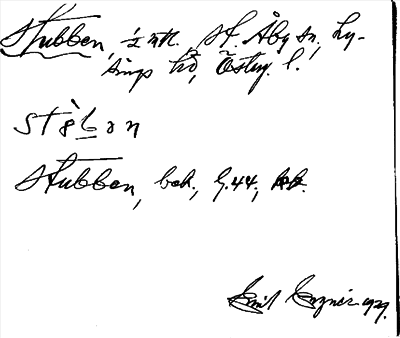 Stubben, ½ mtl., St. Åby sn, Ly-
sings hd, Österg. l.
stə̀bən
Stubben, bek., G.44,
Emil 1929.